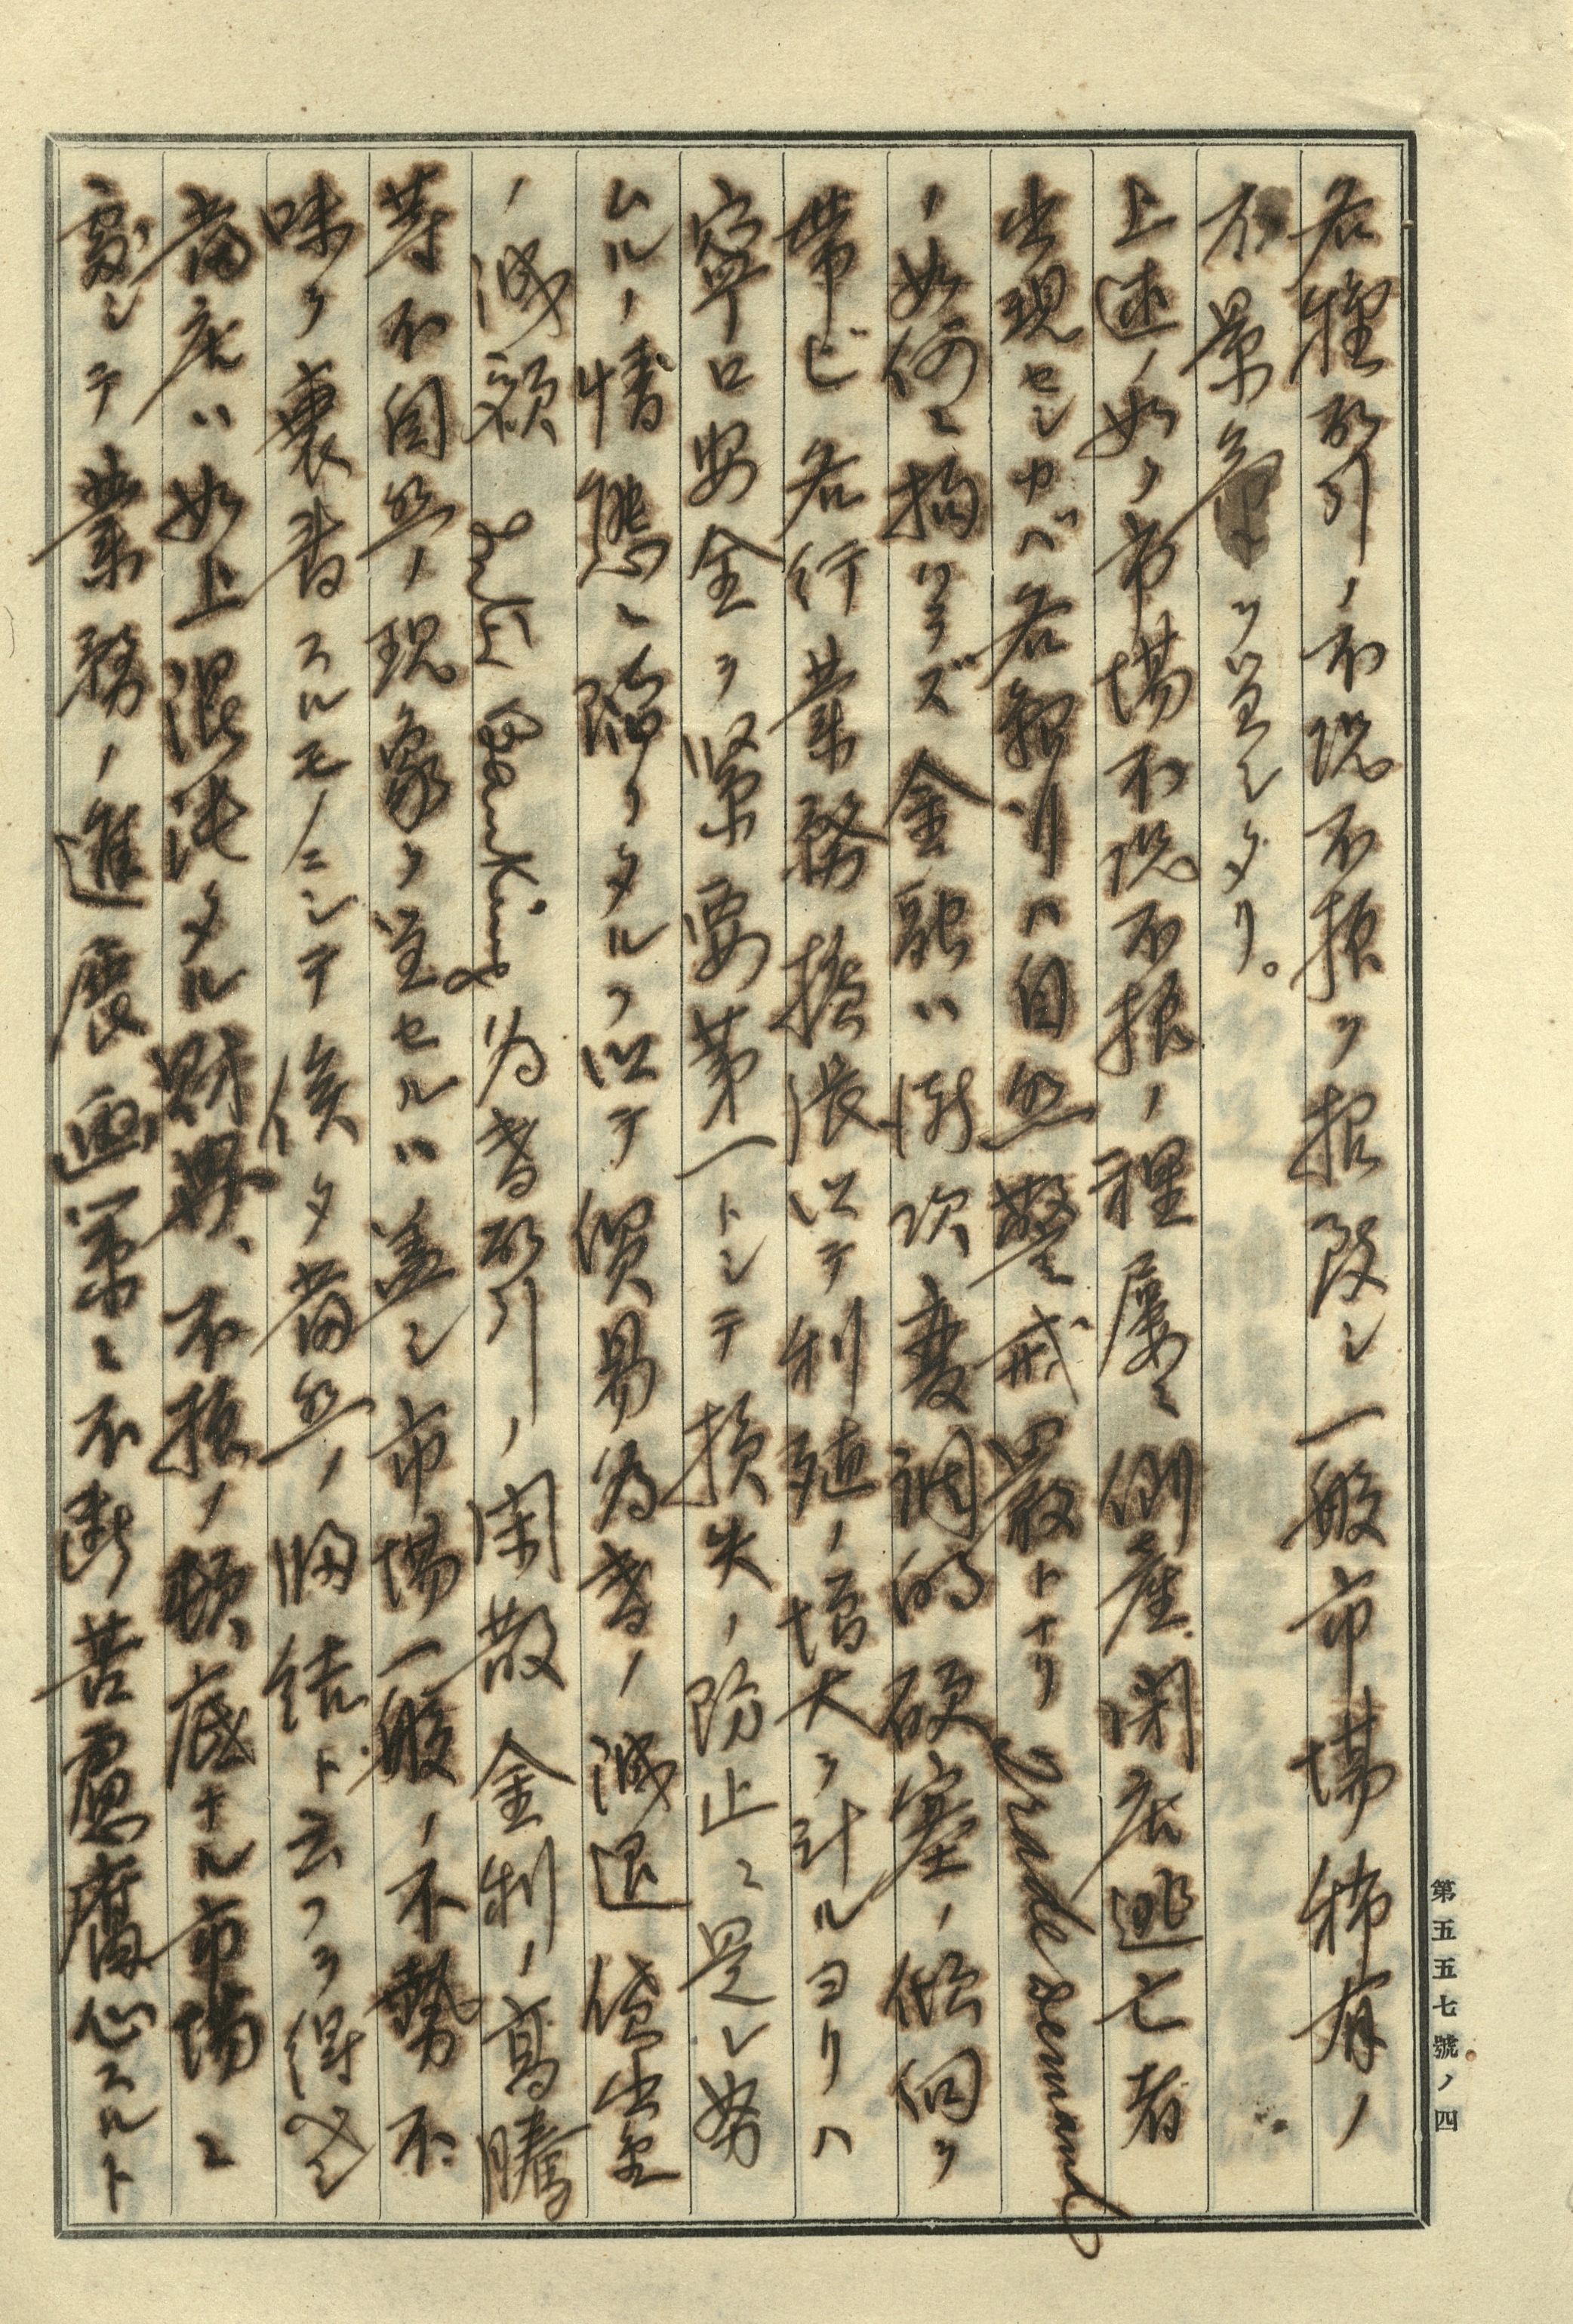 各種取引ノ不況不振ヲ招致シ一般市場稀有ノ
不景気ヲ呈シタリ。
上述ノ如ク市場不況不振ノ裡屡々倒産閉店逃亡者
出現セシカバ各銀行ハ自然警戒厳トナリ Trade demand
ノ如何ニ拘ハラズ金融ハ漸次変調的硬塞ノ傾向ヲ
帯ビ各行業務擴張以テ利殖ノ増大ヲ計ルヨリハ
寧ロ安全ヲ緊要第一トシテ損失ノ防止ニ是レ努
ムルノ情態ニ陥リタルヲ以テ貿易為替ノ減退貸出金
ノ減額 Banking 為替取引ノ閑散金利ノ高騰
等不自然ノ現象ヲ呈セルハ蓋シ市場一般ノ不勢不
味ヲ裏書スルモノニシテ俟タ当然ノ帰結ト云フヲ得ベシ
当店ハ如上混沌タル財界、不振ノ頓底ナル市場ニ
処シテ業務ノ進展画策ニ不断苦慮腐心スルト
第五五七號ノ四